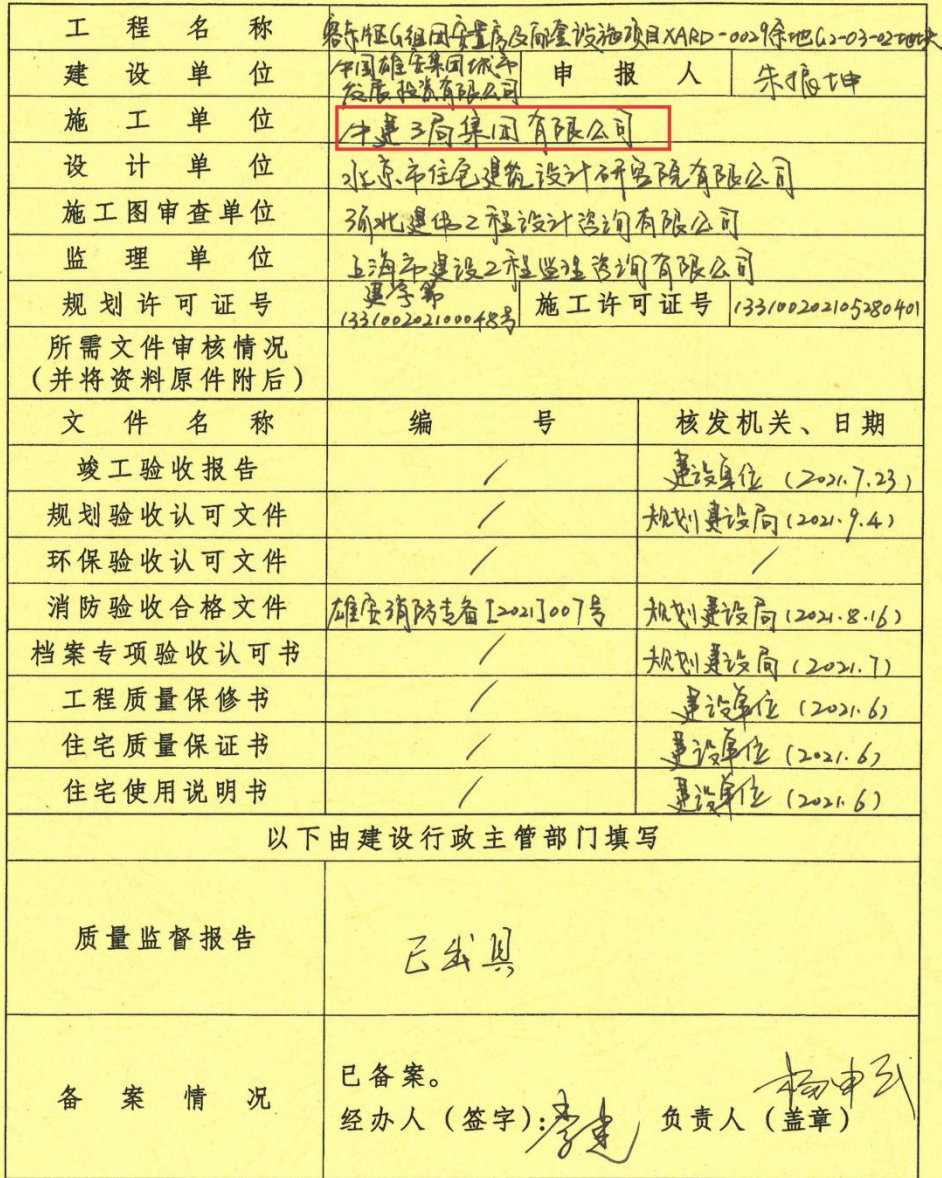 工程名称 容东片区G组团安置房及配套设施项目XARD-0029宗地G2-03-02地块
建设单位 中国雄安集团城市发展投资有限公司 申报人 朱振坤
施工单位 中建三局集团有限公司
设计单位 北京市住宅建筑设计研究院有限公司
施工图审查单位 河北建伟工程设计咨询有限公司
监理单位 上海市建设工程监理咨询有限公司
规划许可证号 建字第133100202100048号 施工许可证号 133100202105280401
所需文件审核情况
(并将资料原件附后)
文件名称 编号 核发机关、日期
竣工验收报告 / 建设单位 (2021.7.23)
规划验收认可文件 / 规划建设局 (2021.9.4)
环保验收认可文件 / /
消防验收合格文件 雄安消防专备[2021]007号 规划建设局 (2021.8.16)
档案专项验收认可书 / 规划建设局 (2021.7)
工程质量保修书 / 建设单位 (2021.6)
住宅质量保证书 / 建设单位 (2021.6)
住宅使用说明书 / 建设单位 (2021.6)
以下由建设行政主管部门填写
质量监督报告 已出具
已备案。
备案情况 经办人(签字): 李 负责人(盖章)